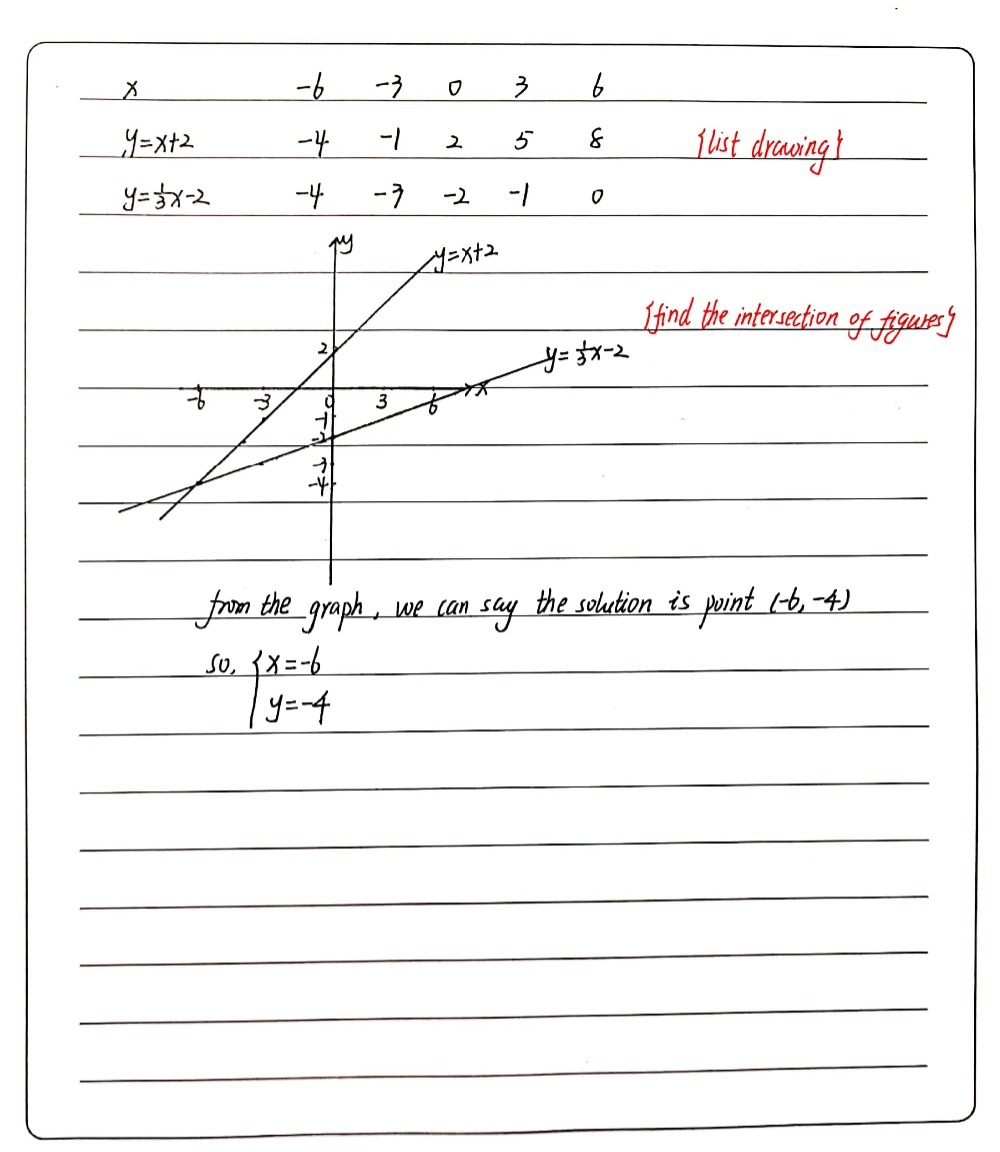 x -6 -3 0 3 6
y=x+2 -4 -1 2 5 8 {list drawing}
y=1/3x-2 -4 -3 -2 -1 0
y
y=x+2
{find the intersection of figures}
2
y=1/3x-2
-6 -3 0 3 6 x
-1
-2
-3
-4
from the graph, we can say the solution is point (-6,-4)
so, {x=-6
y=-4